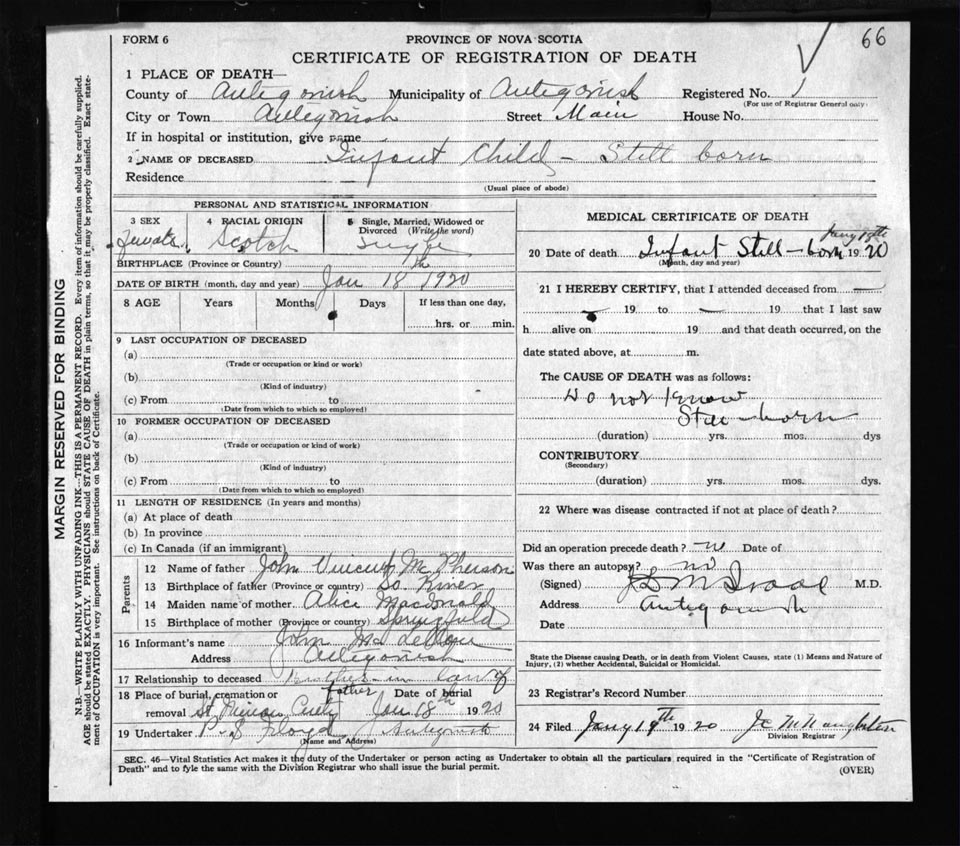 FORM 6
PROVINCE OF NOVA SCOTIA
66
CERTIFICATE OF REGISTRATION OF DEATH
1 PLACE OF DEATH—
County of Antigonish Municipality of Antigonish Registered No. 1
(For use of Registrar General only)
City or Town Antigonish Street Main House No.
If in hospital or institution, give name
2 NAME OF DECEASED Infant Child – Still born
Residence
(Usual place of abode)
PERSONAL AND STATISTICAL INFORMATION
3 SEX 4 RACIAL ORIGIN 5 Single, Married, Widowed or Divorced (Write the word)
Female Scotch Single
BIRTHPLACE (Province or Country)
DATE OF BIRTH (month, day and year) Jan 18th 1920
8 AGE Years Months Days If less than one day,
hrs. or min.
9 LAST OCCUPATION OF DECEASED
(a)
(Trade or occupation or kind or work)
(b)
(Kind of industry)
(c) From to
(Date from which to which so employed)
10 FORMER OCCUPATION OF DECEASED
(a)
(Trade or occupation or kind of work)
(b)
(Kind of industry)
(c) From to
(Date from which to which so employed)
11 LENGTH OF RESIDENCE (In years and months)
(a) At place of death
(b) In province
(c) In Canada (if an immigrant)
Parents
12 Name of father John Vincent McPherson
13 Birthplace of father (Province or country) So River
14 Maiden name of mother Alice Macdonald
15 Birthplace of mother (Province or country) Springfield
16 Informant's name John
Address Antigonish
17 Relationship to deceased Brother-in law of
father
18 Place of burial, cremation or Date of burial
removal St Ninian Jan 18th 1920
19 Undertaker P.S. Floyd Antigonish
(Name and Address)
MEDICAL CERTIFICATE OF DEATH
20 Date of death Infant Still-born Jany 1920
(Month, day and year)
21 I HEREBY CERTIFY, that I attended deceased from —
19 to — 19 that I last saw
h alive on 19 and that death occurred, on the
date stated above, at m.
The CAUSE OF DEATH was as follows:
Do not know
Still born
(duration) yrs. mos. dys
CONTRIBUTORY
(Secondary)
(duration) yrs. mos. dys.
22 Where was disease contracted if not at place of death?
Did an operation precede death? no Date of
Was there an autopsy? no
(Signed) M.D.
Address Antigonish
Date
State the Disease causing Death, or in death from Violent Causes, state (1) Means and Nature of
Injury, (2) whether Accidental, Suicidal or Homicidal.
23 Registrar's Record Number
24 Filed Jany 19th 1920
Division Registrar
SEC. 46—Vital Statistics Act makes it the duty of the Undertaker or person acting as Undertaker to obtain all the particulars required in the "Certificate of Registration of
Death" and to fyle the same with the Division Registrar who shall issue the burial permit.
(OVER)
MARGIN RESERVED FOR BINDING
N.B.—WRITE PLAINLY WITH UNFADING INK—THIS IS A PERMANENT RECORD. Every item of information should be carefully supplied.
AGE should be stated EXACTLY. PHYSICIANS should STATE CAUSE OF DEATH in plain terms, so that it may be properly classified. Exact state-
ment of OCCUPATION is very important. See instructions on back of Certificate.